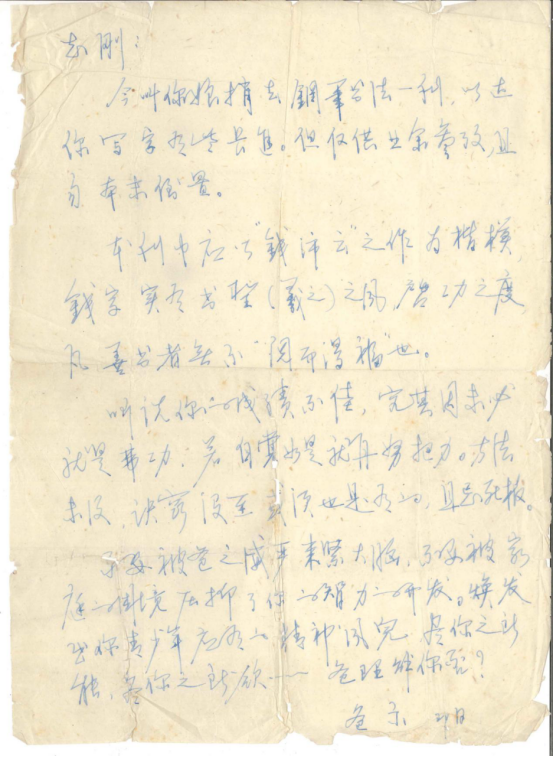 志刚：
今叫你娘捎去钢笔书法一刊，以达
你写字有些长进。但仅供业余参考，且
勿本末倒置。
本刊中应以"钱沛云"之作为楷模，
钱字实有书圣(羲之)之风，启功之度，
凡善书者无不"阅而得福"也。
听说你的成绩不佳，究其因未必
就是弗功。若自觉如是就再努把力。方法
诀窍 也是有的，且忌死板。
不要被爸之威严束紧大脑，不要被家
庭的环境压抑了你的智力的开发。焕发
出你青少年应有的精神风貌，是你之所
能，爸你之所欲—— 爸理解你否？
爸示 即日